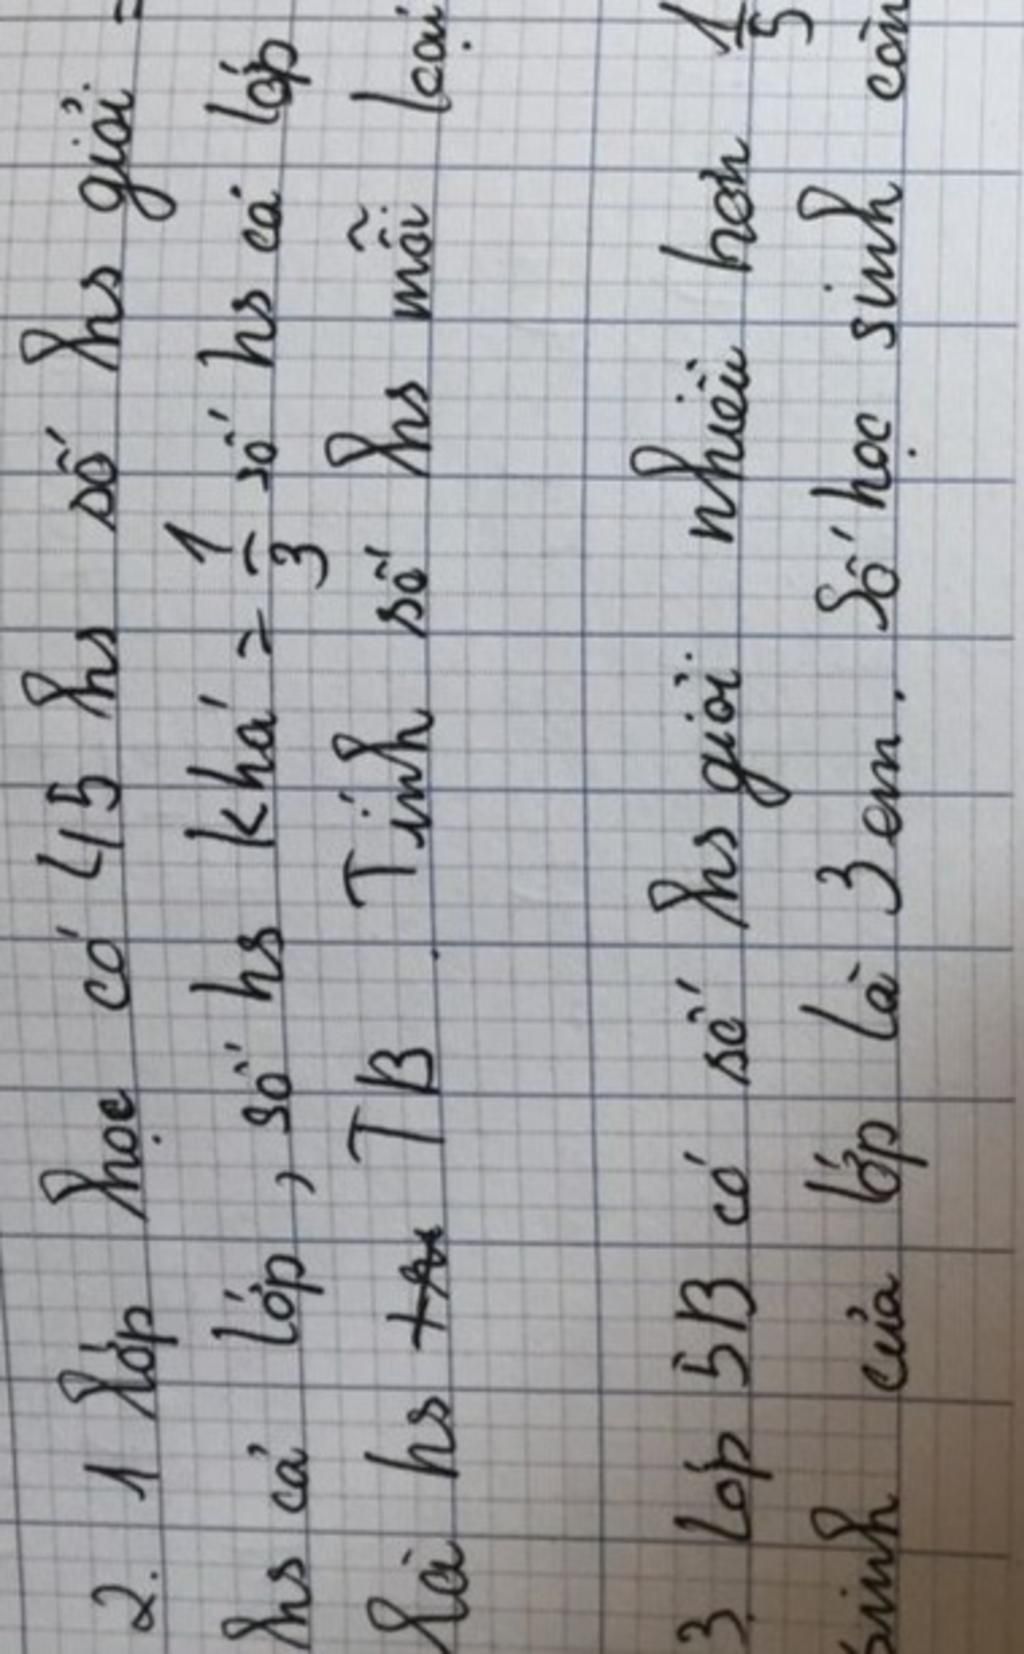 2. 1 lớp học có 45 hs số hs giỏi =
hs cả lớp, số hs khá = 1/3 số hs cả lớp
là hs TB. Tính số hs mỗi loại
3 Lớp 5B có số hs giỏi nhiều hơn 1/5
sinh của lớp là 3 em. Số học sinh còn